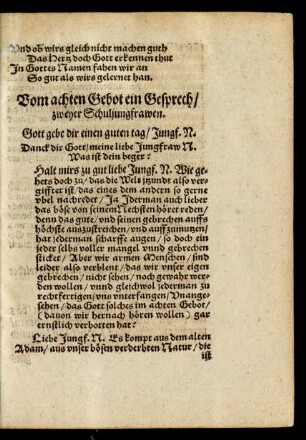 Vnd ob wirs gleich nicht machen guth
Das Hertz doch Gott erkennen thut
In Gottes Namen fahen wir an
So gut als wirs gelernet han.
Vom achten Gebot ein Gesprech/
zweyer Schuljungfrawen.
Gott gebe dir einen guten tag/ Jungf. N.
Danck dir Gott/ meine liebe Jungfraw N.
Was ist dein beger?
Halt mirs zu gut liebe Jungf. N. Wie ge-
hets doch zu/ das die Welt itzundt also ver-
gifftet ist/ das eines dem andern so gerne
vbel nachredet/ Ja Jderman auch lieber
das böse von seinem Nechsten höret reden/
denn das gute/ vnd seinen gebrechen auffs
höchste auszustreichen/ vnd auffzumutzen/
hat jederman scharffe augen/ so doch ein
jeder selbs voller mangel vnnd gebrechen
sticket/ Aber wir armen Menschen/ sind
leider also verblent/ das wir vnser eigen
gebrechen/ nicht sehen/ noch gewahr wer-
den wollen/ vnnd gleichwol jederman zu
rechtfertigen/ vns vnterfangen/ Vnange-
sehen/ das Gott solches im achten Gebot/
(dauon wir hernach hören wollen) gar
ernstlich verbotten hat?
Liebe Jungf. N. Es kompt aus dem alten
Adam/ aus vnser bösen verderbten Natur/ die
ist